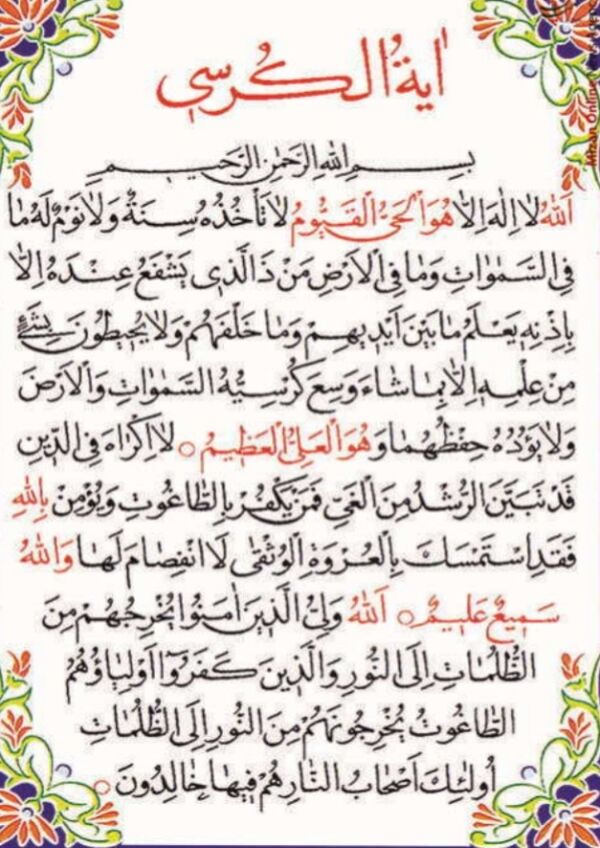 اٰیَةُ الْکُرْسِی
بِسْمِ اللّٰهِ الرَّحْمٰنِ الرَّحیمِ
اَللّٰهُ لٰا اِلٰهَ اِلّٰا هُوَ الْحَیُّ الْقَیُّومُ لٰا تَأْخُذُهُ سِنَةٌ وَ لٰا نَوْمٌ لَهُ مٰا
فِی السَّمٰوٰاتِ وَ مٰا فِی الْاَرْضِ مَنْ ذَا الَّذی یَشْفَعُ عِنْدَهُ اِلّٰا
بِاِذْنِهِ یَعْلَمُ مٰا بَیْنَ اَیْدیهِمْ وَ مٰا خَلْفَهُمْ وَ لٰا یُحیطُونَ بِشَیْءٍ
مِنْ عِلْمِهِ اِلّٰا بِمٰا شٰاءَ وَسِعَ کُرْسِیُّهُ السَّمٰوٰاتِ وَ الْاَرْضَ
وَ لٰا یَؤُدُهُ حِفْظُهُمٰا وَ هُوَ الْعَلِیُّ الْعَظیمُ ○ لٰا اِکْرٰاهَ فِی الدّینِ
قَدْ تَبَیَّنَ الرُّشْدُ مِنَ الْغَیِّ فَمَنْ یَکْفُرْ بِالطّٰاغُوتِ وَ یُؤْمِنْ بِاللّٰهِ
فَقَدِ اسْتَمْسَکَ بِالْعُرْوَةِ الْوُثْقیٰ لَا انْفِصٰامَ لَهٰا وَ اللّٰهُ
سَمیعٌ عَلیمٌ ○ اَللّٰهُ وَلِیُّ الَّذینَ اٰمَنُوا یُخْرِجُهُمْ مِنَ
الظُّلُمٰاتِ اِلَی النُّورِ وَ الَّذینَ کَفَرُوا اَوْلِیٰاؤُهُمُ
الطّٰاغُوتُ یُخْرِجُونَهُمْ مِنَ النُّورِ اِلَی الظُّلُمٰاتِ
اُولٰئِکَ اَصْحٰابُ النّٰارِ هُمْ فیهٰا خٰالِدُونَ ○